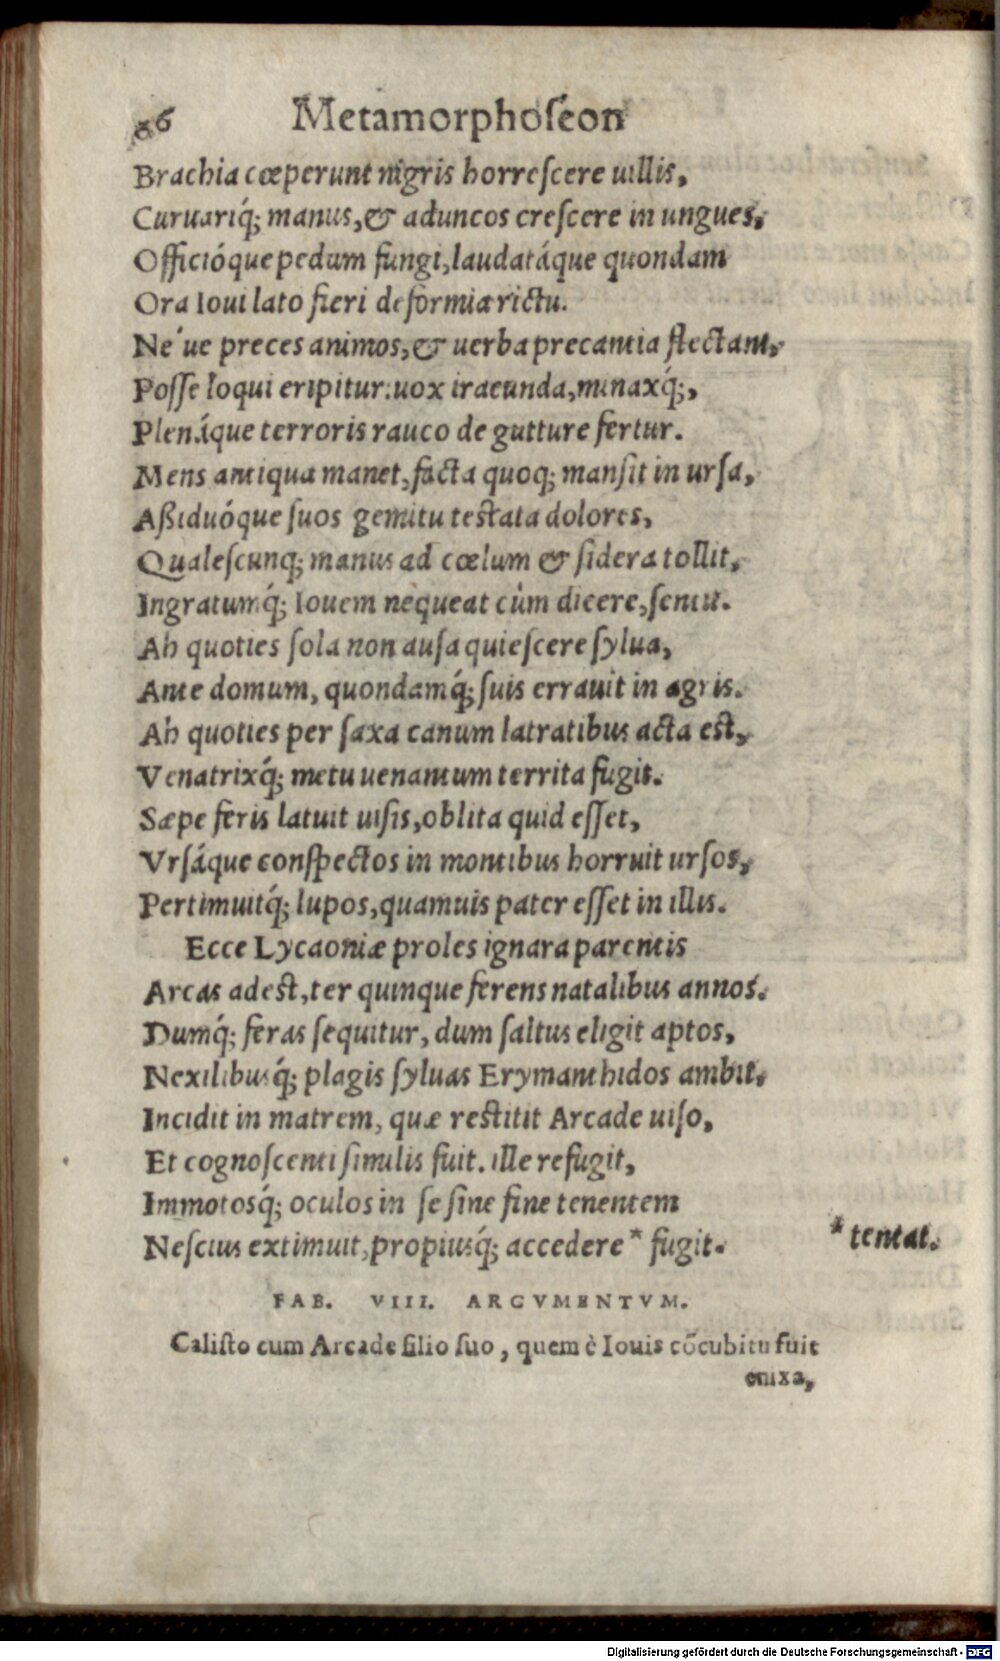 86 Metamorphoſeon
Brachia cœperunt nigris horreſcere uillis,
Curuariq́; manus, & aduncos creſcere in ungues,
Officióque pedum fungi, laudatáque quondam
Ora Ioui lato fieri deformia rictu.
Né ue preces animos, & uerba precantia flectant,
Poſſe loqui eripitur: uox iracunda, minaxq́;,
Plenáque terroris rauco de gutture fertur.
Mens antiqua manet, facta quoq; manſit in urſa,
Aßiduóque ſuos gemitu teſtata dolores,
Qualeſcunq; manus ad cœlum & ſidera tollit,
Ingratumq́; Iouem nequeat cùm dicere, ſentit.
Ah quoties ſola non auſa quieſcere ſylua,
Ante domum, quondamq́; ſuis errauit in agris.
Ah quoties per ſaxa canum latratibus acta eſt,
Venatrixq́; metu uenantum territa fugit.
Sæpe feris latuit uiſis, oblita quid eſſet,
Vrſáque conſpectos in montibus horruit urſos,
Pertimuitq́; lupos, quamuis pater eſſet in illis.
Ecce Lycaoniæ proles ignara parentis
Arcas adeſt, ter quinque ferens natalibus annos.
Dumq́; feras ſequitur, dum ſaltus eligit aptos,
Nexilibusq́; plagis ſyluas Erymanthidos ambit,
Incidit in matrem, quæ reſtitit Arcade uiſo,
Et cognoſcenti ſimilis fuit. ille refugit,
Immotosq́; oculos in ſe ſine fine tenentem
Neſcius extimuit, propiusq́; accedere * fugit.
* tentat.
FAB. VIII. ARGVMENTVM.
Caliſto cum Arcade filio ſuo, quem è Iouis cōcubitu fuit
enixa,
Digitalisierung gefördert durch die Deutsche Forschungsgemeinschaft - DFG